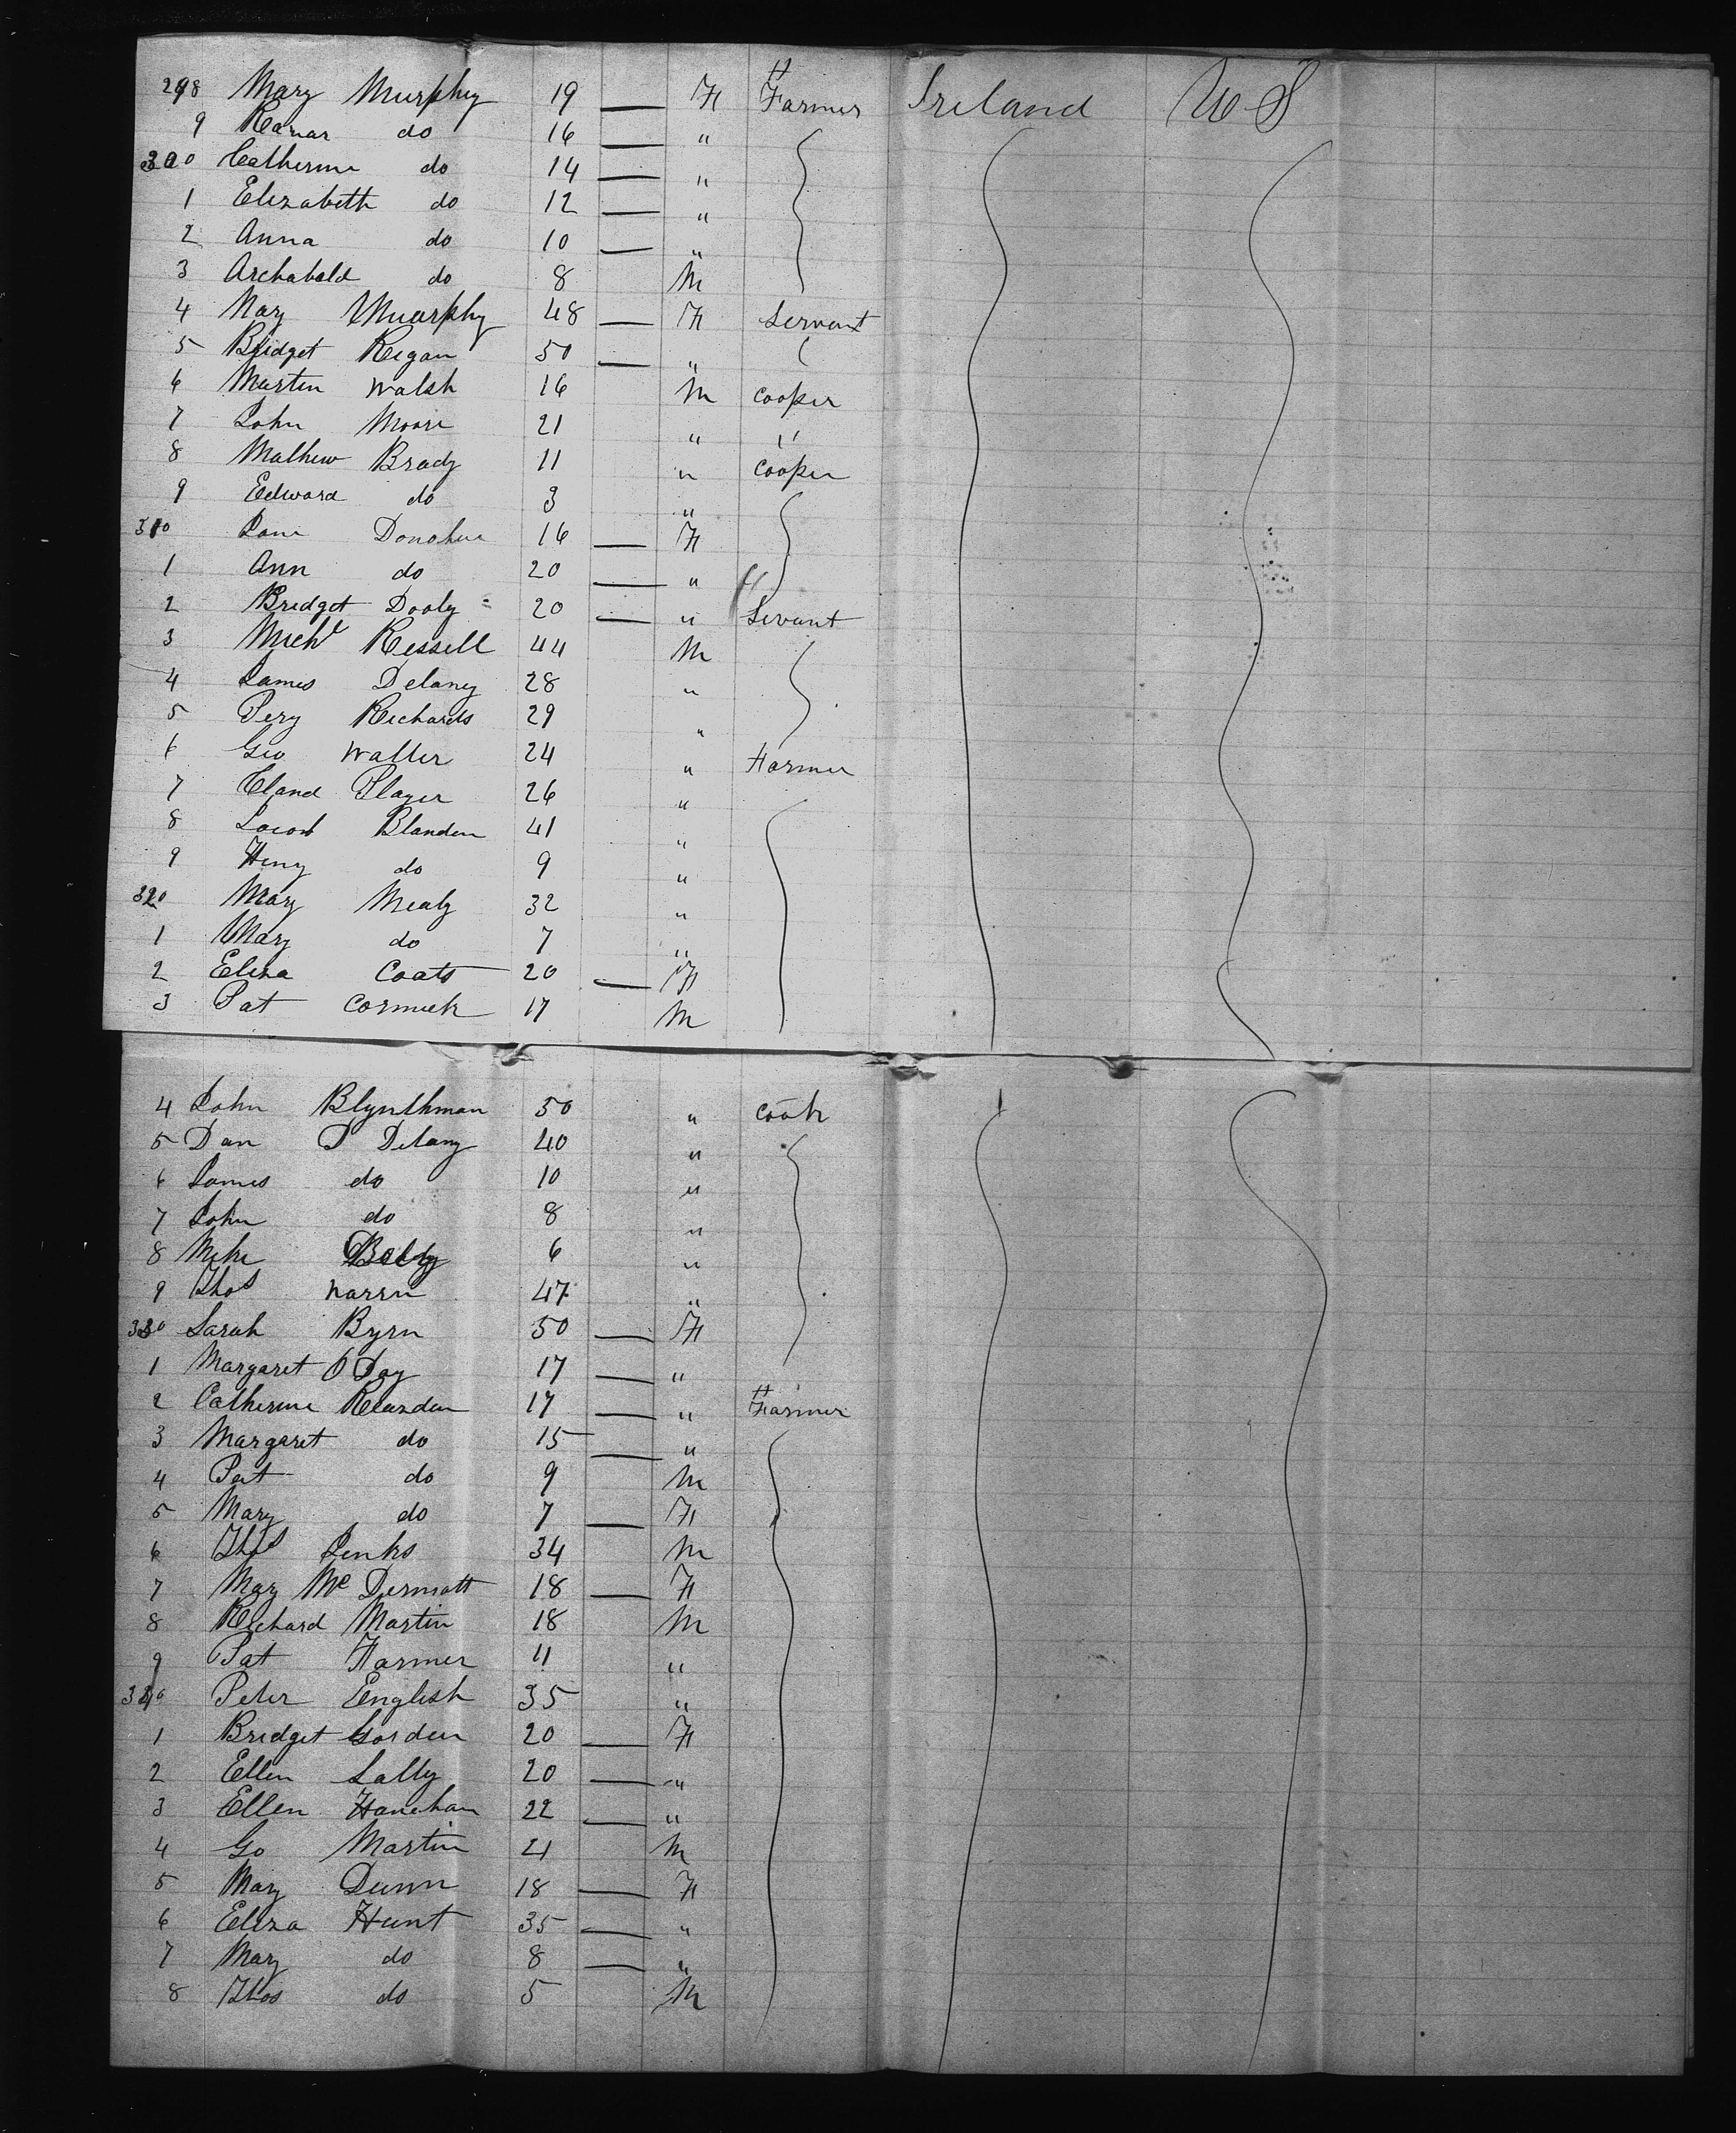 298 Mary Murphy 19 — F Farmer Ireland U S
9 do 16 — "
300 Catherine do 14 — "
1 Elizabeth do 12 — "
2 Anna do 10 — "
3 Archabald do 8 M
4 Mary Muurphy 48 — F Servant
5 Bridget Regan 50 — "
6 Martin Walsh 16 M Cooper
7 John Moore 21 " "
8 Mathew Brady 11 " Cooper
9 Edward do 3 "
310 Jane Donohue 16 — F
1 Ann do 20 — "
2 Bridget Dooly 20 — " Servant
3 Michl Russell 44 M
4 James Delaney 28 "
5 Richards 29 "
6 Geo Waller 24 " Farmer
7 Player 26 "
8 Jacob Blanden 41 "
9 Heny do 9 "
320 Mary Mealy 32 "
1 Mary do 7 "
2 Eliza Coats 20 — F
3 Pat Cormick 17 M
4 John Blynthman 50 " Cook
5 Dan P Delany 40 "
6 James do 10 "
7 John do 8 "
8 Mike 6 "
9 Thos 47 "
330 Sarah Byrn 50 — F
1 Margaret O Day 17 — "
2 Catherine Rearden 17 — " Farmer
3 Margaret do 15 — "
4 Pat do 9 M
5 Mary do 7 — F
6 Thos Jenks 34 M
7 Mary Mc Dermott 18 — F
8 Richard Martin 18 M
9 Pat Farmer 11 "
340 Peter English 35 "
1 Bridget Gorden 20 — F
2 Ellen Lally 20 — "
3 Ellen Hanehan 22 — "
4 Go Martin 21 M
5 Mary Dunn 18 — F
6 Eliza Hunt 35 — "
7 Mary do 8 — "
8 Thos do 5 M